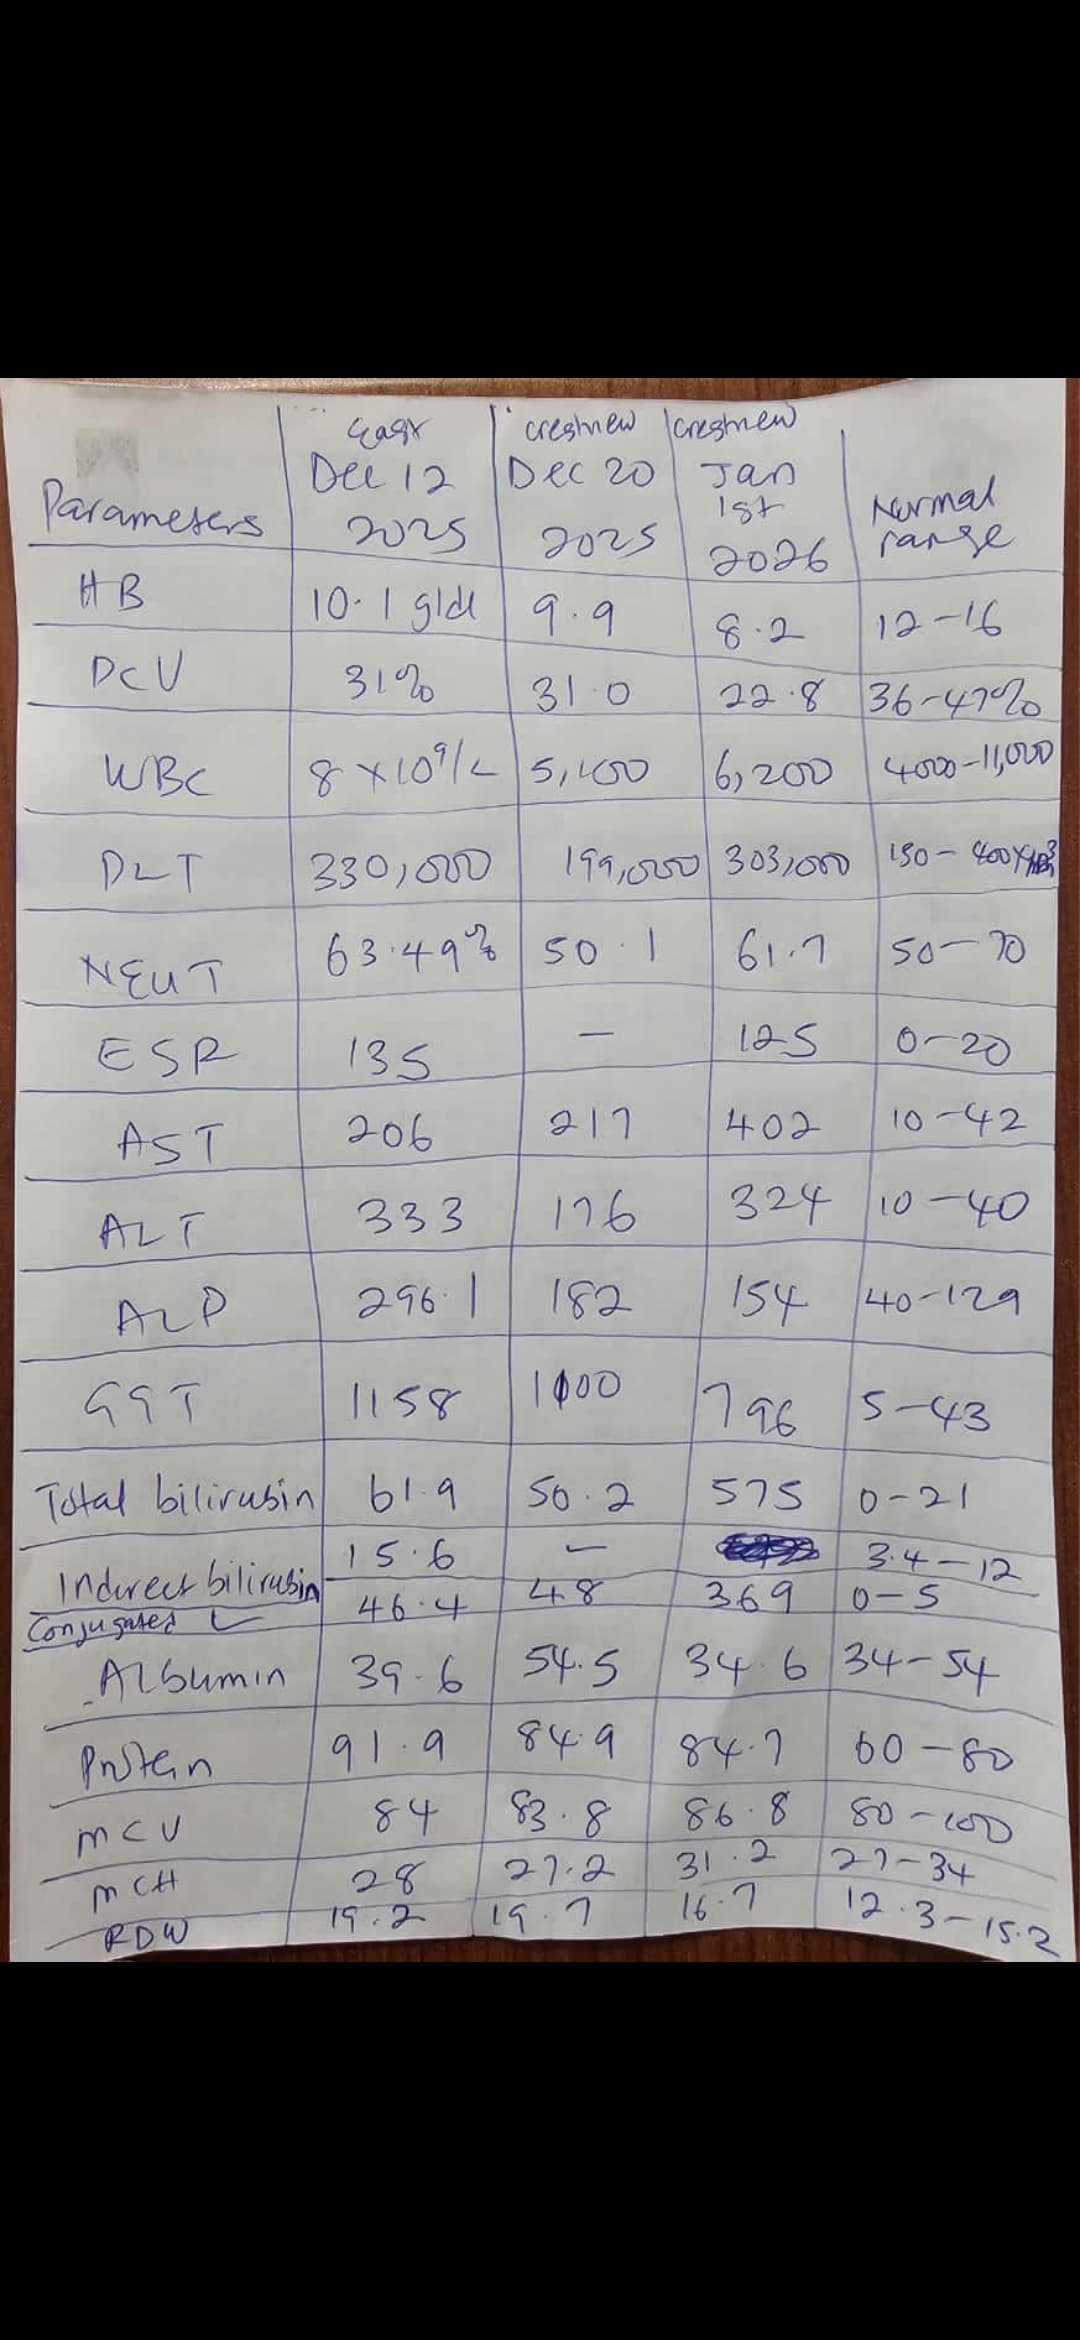 East crestview crestview
Parameters Dec 12 2025 Dec 20 2025 Jan 1st 2026 Normal range
HB 10.1 g/dl 9.9 8.2 12-16
PCV 31% 31.0 22.8 36-47%
WBC 8 x 10⁹/L 5,100 6,200 4000-11,000
PLT 330,000 199,000 303,000 150-400
NEUT 63.49% 50.1 61.7 50-70
ESR 135 - 125 0-20
AST 206 217 402 10-42
ALT 333 176 324 10-40
ALP 296.1 182 154 40-129
GGT 1158 1100 796 5-43
Total bilirubin 61.9 50.2 575 0-21
Indirect bilirubin 15.6 - 3.4-12
Conjugated 46.4 48 369 0-5
Albumin 39.6 54.5 34.6 34-54
Protein 91.9 84.9 84.7 60-80
MCV 84 83.8 86.8 80-100
MCH 28 27.2 31.2 27-34
RDW 19.2 19.7 16.7 12.3-15.2